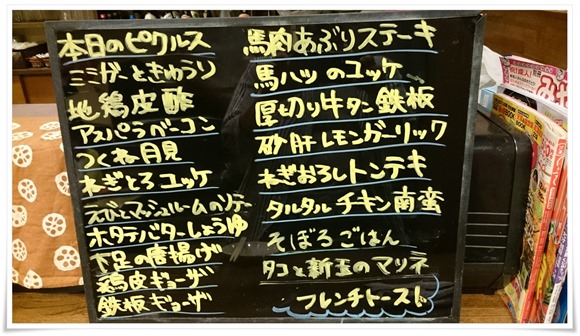 本日のピクルス
ミミガーときゅうり
地鶏皮酢
アスパラベーコン
つくね月見
ねぎとろユッケ
えびとマッシュルームのソテー
ホタテバターしょうゆ
下足の唐揚げ
鶏皮ギョーザ
鉄板ギョーザ
馬肉あぶりステーキ
馬ハツのユッケ
厚切り牛タン鉄板
砂肝レモンガーリック
ねぎおろしトンテキ
タルタルチキン南蛮
そぼろごはん
タコと新玉のマリネ
フレンチトースト